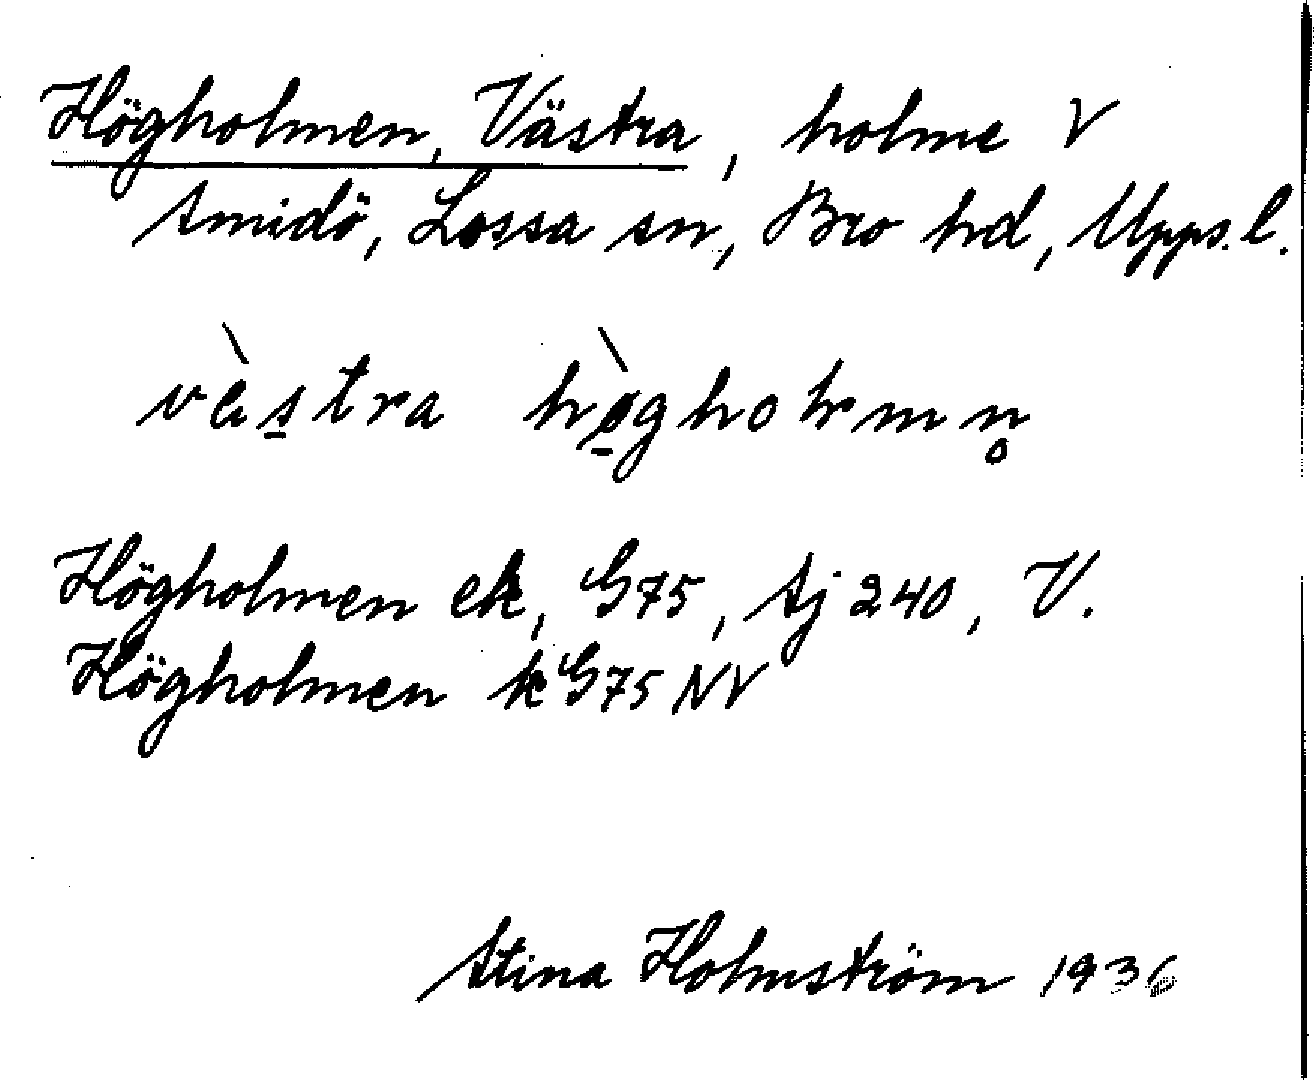 Högholmen, Västra, holme V
Smidö, Lossa sn, Bro hd, Upps. l.
vä̀stra hø̀gholmn̥
Högholmen ek, G75, Sj 240, V.
Högholmen k G75 NV
Stina Holmström 1936